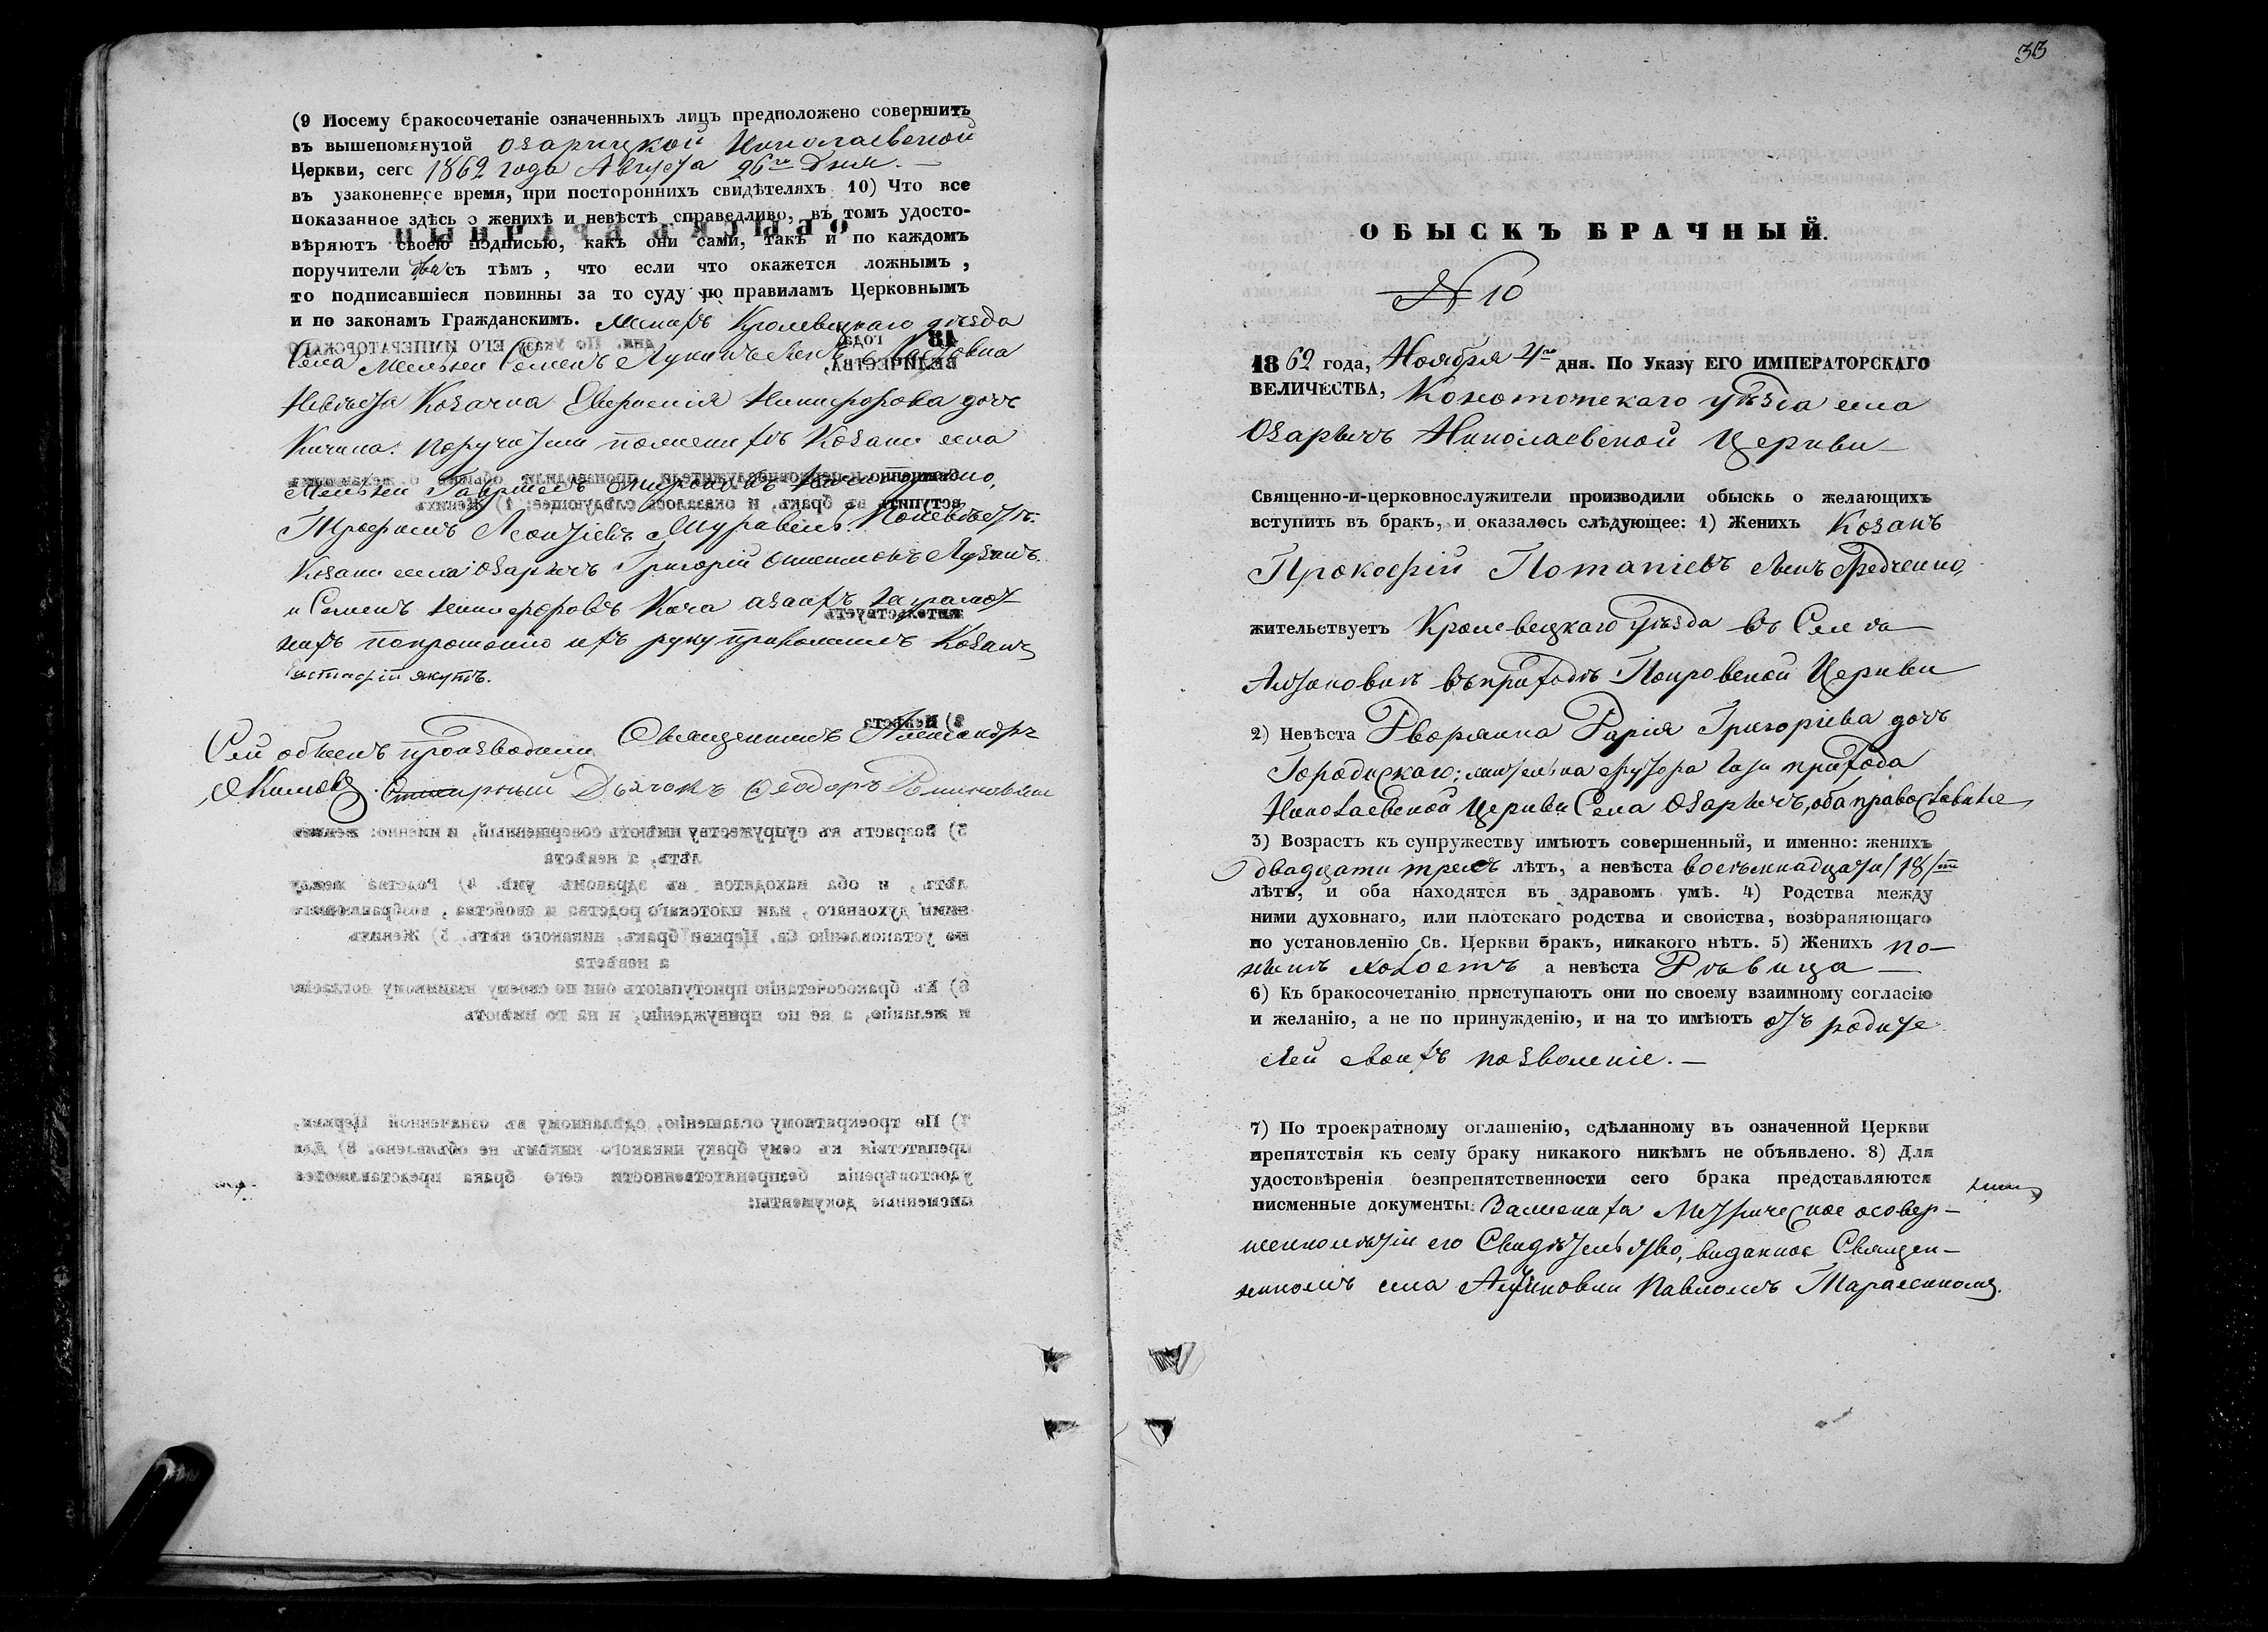 (9 Посему бракосочетаніе означенныхъ лицъ предположено совершить
въ вышепомянутой Озарицкой Николаевской
Церкви, сего 1862 года Августа 26го Дня. —
въ узаконенное время, при постороннихъ свидѣтеляхъ 10) Что все
показанное здѣсь о женихѣ и невѣстѣ справедливо, въ томъ удосто-
вѣряютъ своею подписью, какъ они сами, такъ и по каждомъ
поручители два съ тѣмъ, что если что окажется ложнымъ,
то подписавшіеся повинны за то суду по правиламъ Церковнымъ
и по законамъ Гражданскимъ. Женихъ Кролевецкаго уѣзда
Села Мельни Семенъ Лукинъ сынъ
Невѣста Козачка Никифорова дочь
Кичина: Поручители по женихѣ Козаки села
Мельни Гавріилъ
Трофимъ Леонтіевъ Журавель. По невѣстѣ:
Козаки села Озаричъ Григорій Лузанъ
и Семенъ Никифоровъ Кича а за ихъ неграмот
ныхъ по прошенію ихъ руку приложилъ Козакъ
Евстафій Якутъ.
Сей обыскъ производили Священникъ Александръ
Якимовъ. Дьячокъ Ѳеодоръ
33
ОБЫСКЪ БРАЧНЫЙ.
№ 10
1862 года, Ноября 4го дня. По Указу ЕГО ИМПЕРАТОРСКАГО
ВЕЛИЧЕСТВА, Конотопскаго уѣзда села
Озаричъ Николаевской Церкви —
Священно-и-церковнослужители производили обыскь о желающихъ
вступить въ бракъ, и оказалось слѣдующее: 1) Женихъ Козакъ
Прокофій Потапіевъ сынъ Федченко,
жительствуетъ Кролевецкаго уѣзда въ Селѣ
въ приходѣ Покровской Церкви
2) Невѣста Дворянка Дарія Григоріева дочь
Городискаго; жителька хутора прихода
Николаевской Церкви Села Озаричъ, оба православные
3) Возрастъ къ супружеству имѣютъ совершенный, и именно: женихъ
двадцати трехъ лѣтъ, а невѣста восемнадцати /18/ти
лѣтъ, и оба находятся въ здравомъ умѣ. 4) Родства между
ними духовнаго, или плотскаго родства и свойства, возбраняющаго
по установленію Св. Церкви бракъ, никакого нѣтъ. 5) Женихъ по-
нынѣ холостъ а невѣста Дѣвица —
6) Къ бракосочетанію приступаютъ они по своему взаимному согласію
и желанію, а не по принужденію, и на то имѣютъ отъ родите
лей своихъ позволеніе. —
7) По троекратному оглашенію, сдѣланному въ означенной Церкви
препятствія къ сему браку никакого никѣмъ не объявлено. 8) Для
удостовѣренія безпрепятственности сего брака представляются
писменные документы: За жениха Метрическое о совер-
шеннолѣтіи его Свидѣтельство, виданное Священ-
никомъ села Павломъ